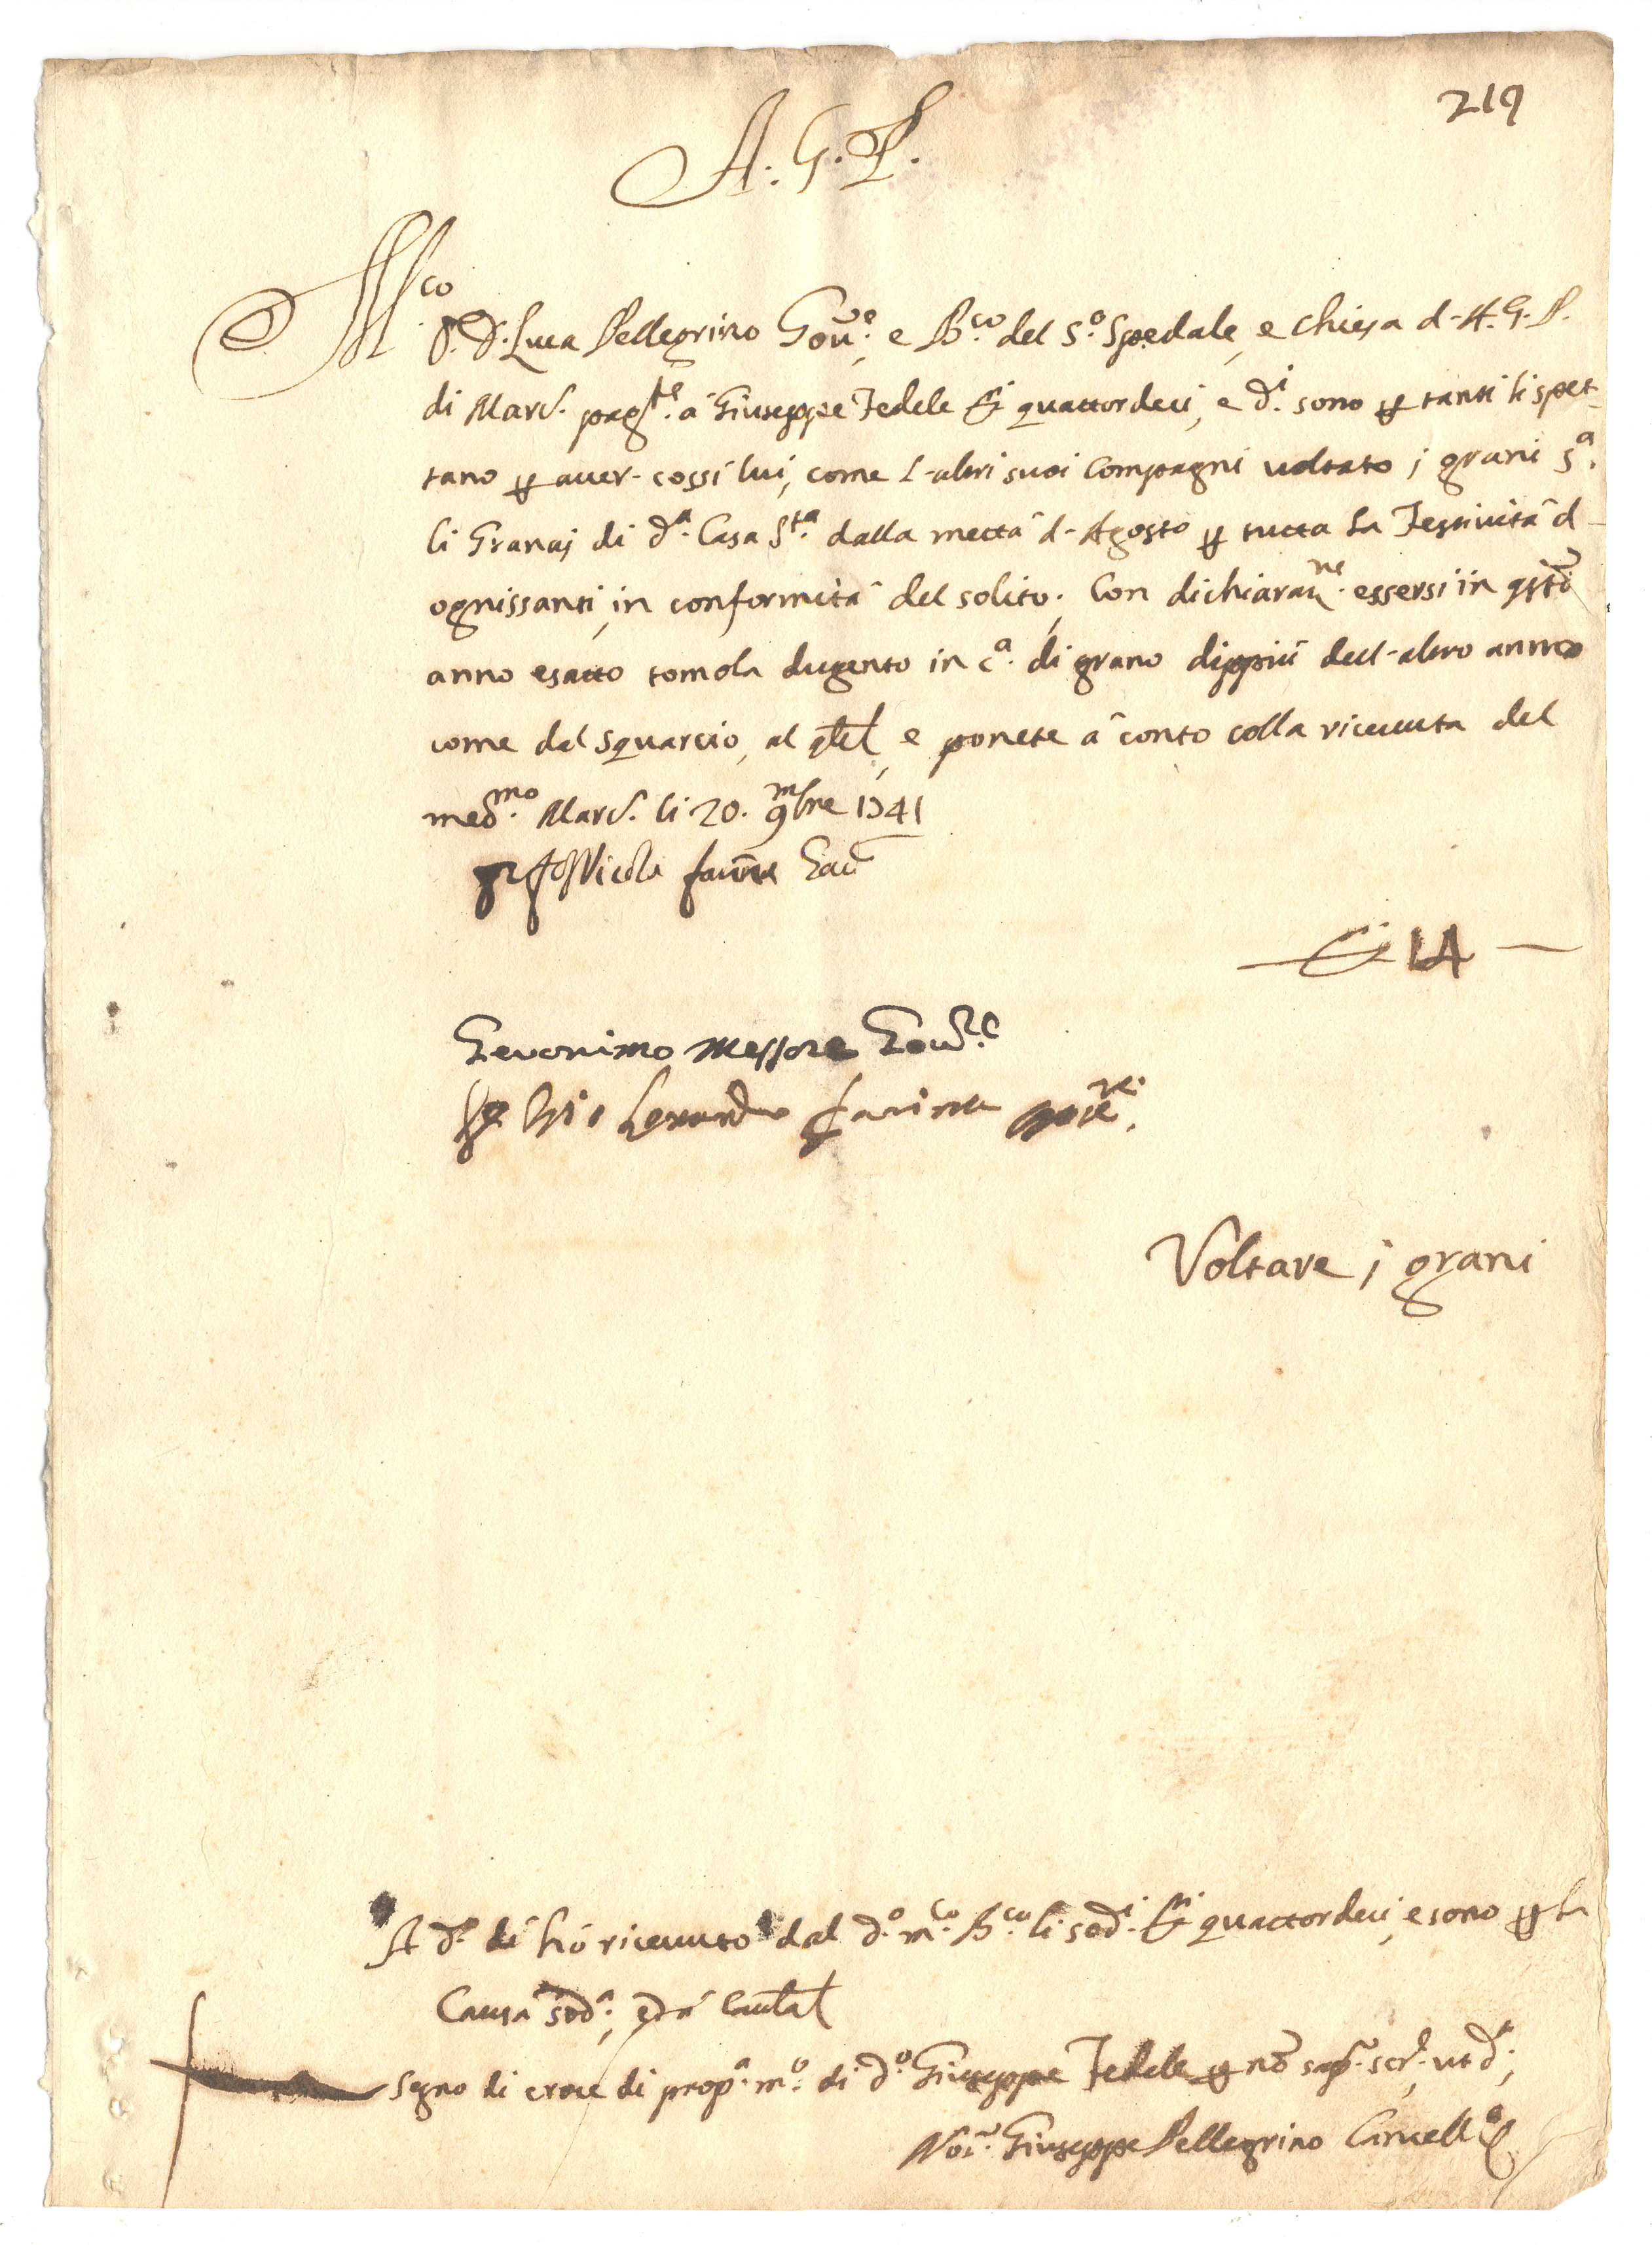 219
A. G. P.
M.co
D. Luca Pellegrino Gov.e, e B.co del S.o Spedale, e Chiesa d-A.G.P.
di Marc. pag.te à Giuseppe Fedele quattordeci, e d.i sono per tanti li spet-
tano per aver- cossì lui, come l-altri suoi Compagni voltato i grani s.a
li Granaj di d.a Casa S.ta dalla mettà d-Agosto per tutta la Festività d-
ognissanti, in conformità del solito; Con dichiaraz.ne essersi in qsto
anno esatto tomola dugento in c.a di grano dippiù dell-altro anno
come dal squarcio, al, e ponete à conto colla ricevuta del
med.mo Marc. li 20. 9mbre 1741
Nicola farina
14 —
Geronimo Messore Gov.re
Lenardo farina
Voltare i grani
A d.o dì hò ricevuto dal d.o m.co B.co li sod.i quattordeci, e sono per la
Causa sod.a, ed à Caut.
Segno di croce di prop.a m.o di d.o Giuseppe Fedele per nõ sap. scr. ut d.r;
Not.r Giuseppe Pellegrino Cancell.o